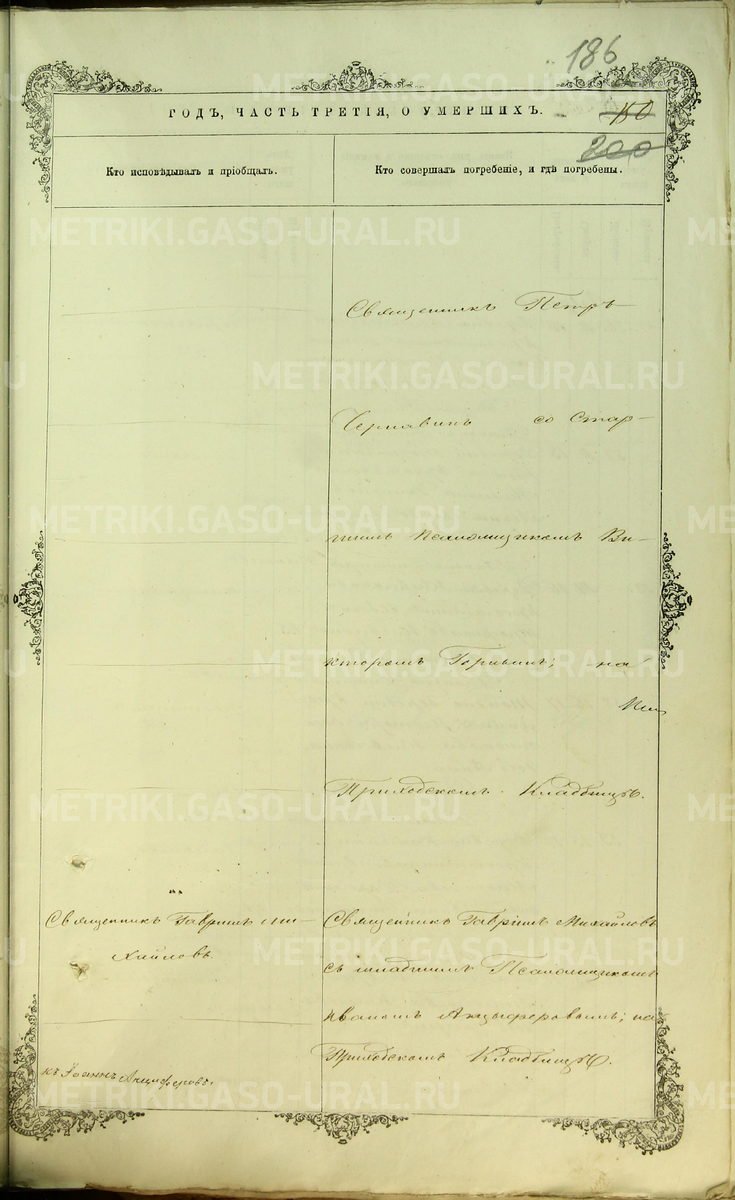 186
ГОДЪ, ЧАСТЬ ТРЕТІЯ, О УМЕРШИХЪ.
200
Кто исповѣдывалъ и пріобщалъ.
Кто совершалъ погребеніе, и гдѣ погребены.
Священникъ Петръ
Чернавинъ со Стар-
шимъ Псаломщикомъ Ви-
кторомъ на
Приходскомъ Кладбищѣ.
Священникъ Гавріилъ Ми-
хайловъ
Священникъ Гавріилъ Михайловъ
съ младшимъ Псаломщикомъ
Иваномъ Анцыферовымъ; на
Приходскомъ Кладбищѣ.
къ Іоаннъ Анциферовъ
METRIKI.GASO-URAL.RU